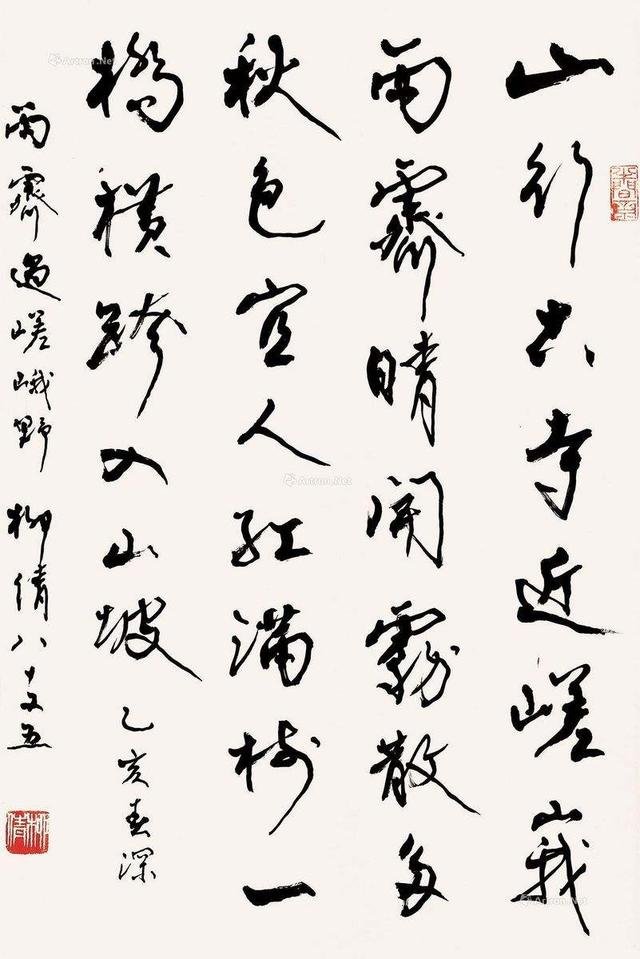 山行古寺近嵯峨
雨霽晴開霧散多
秋色宜人紅滿樹一
橋橫跨入山坡
乙亥春深
雨霽過嵯峨野 柳倩八十又五
柳倩
Artron.Net
Artron.Net
Artron.Net